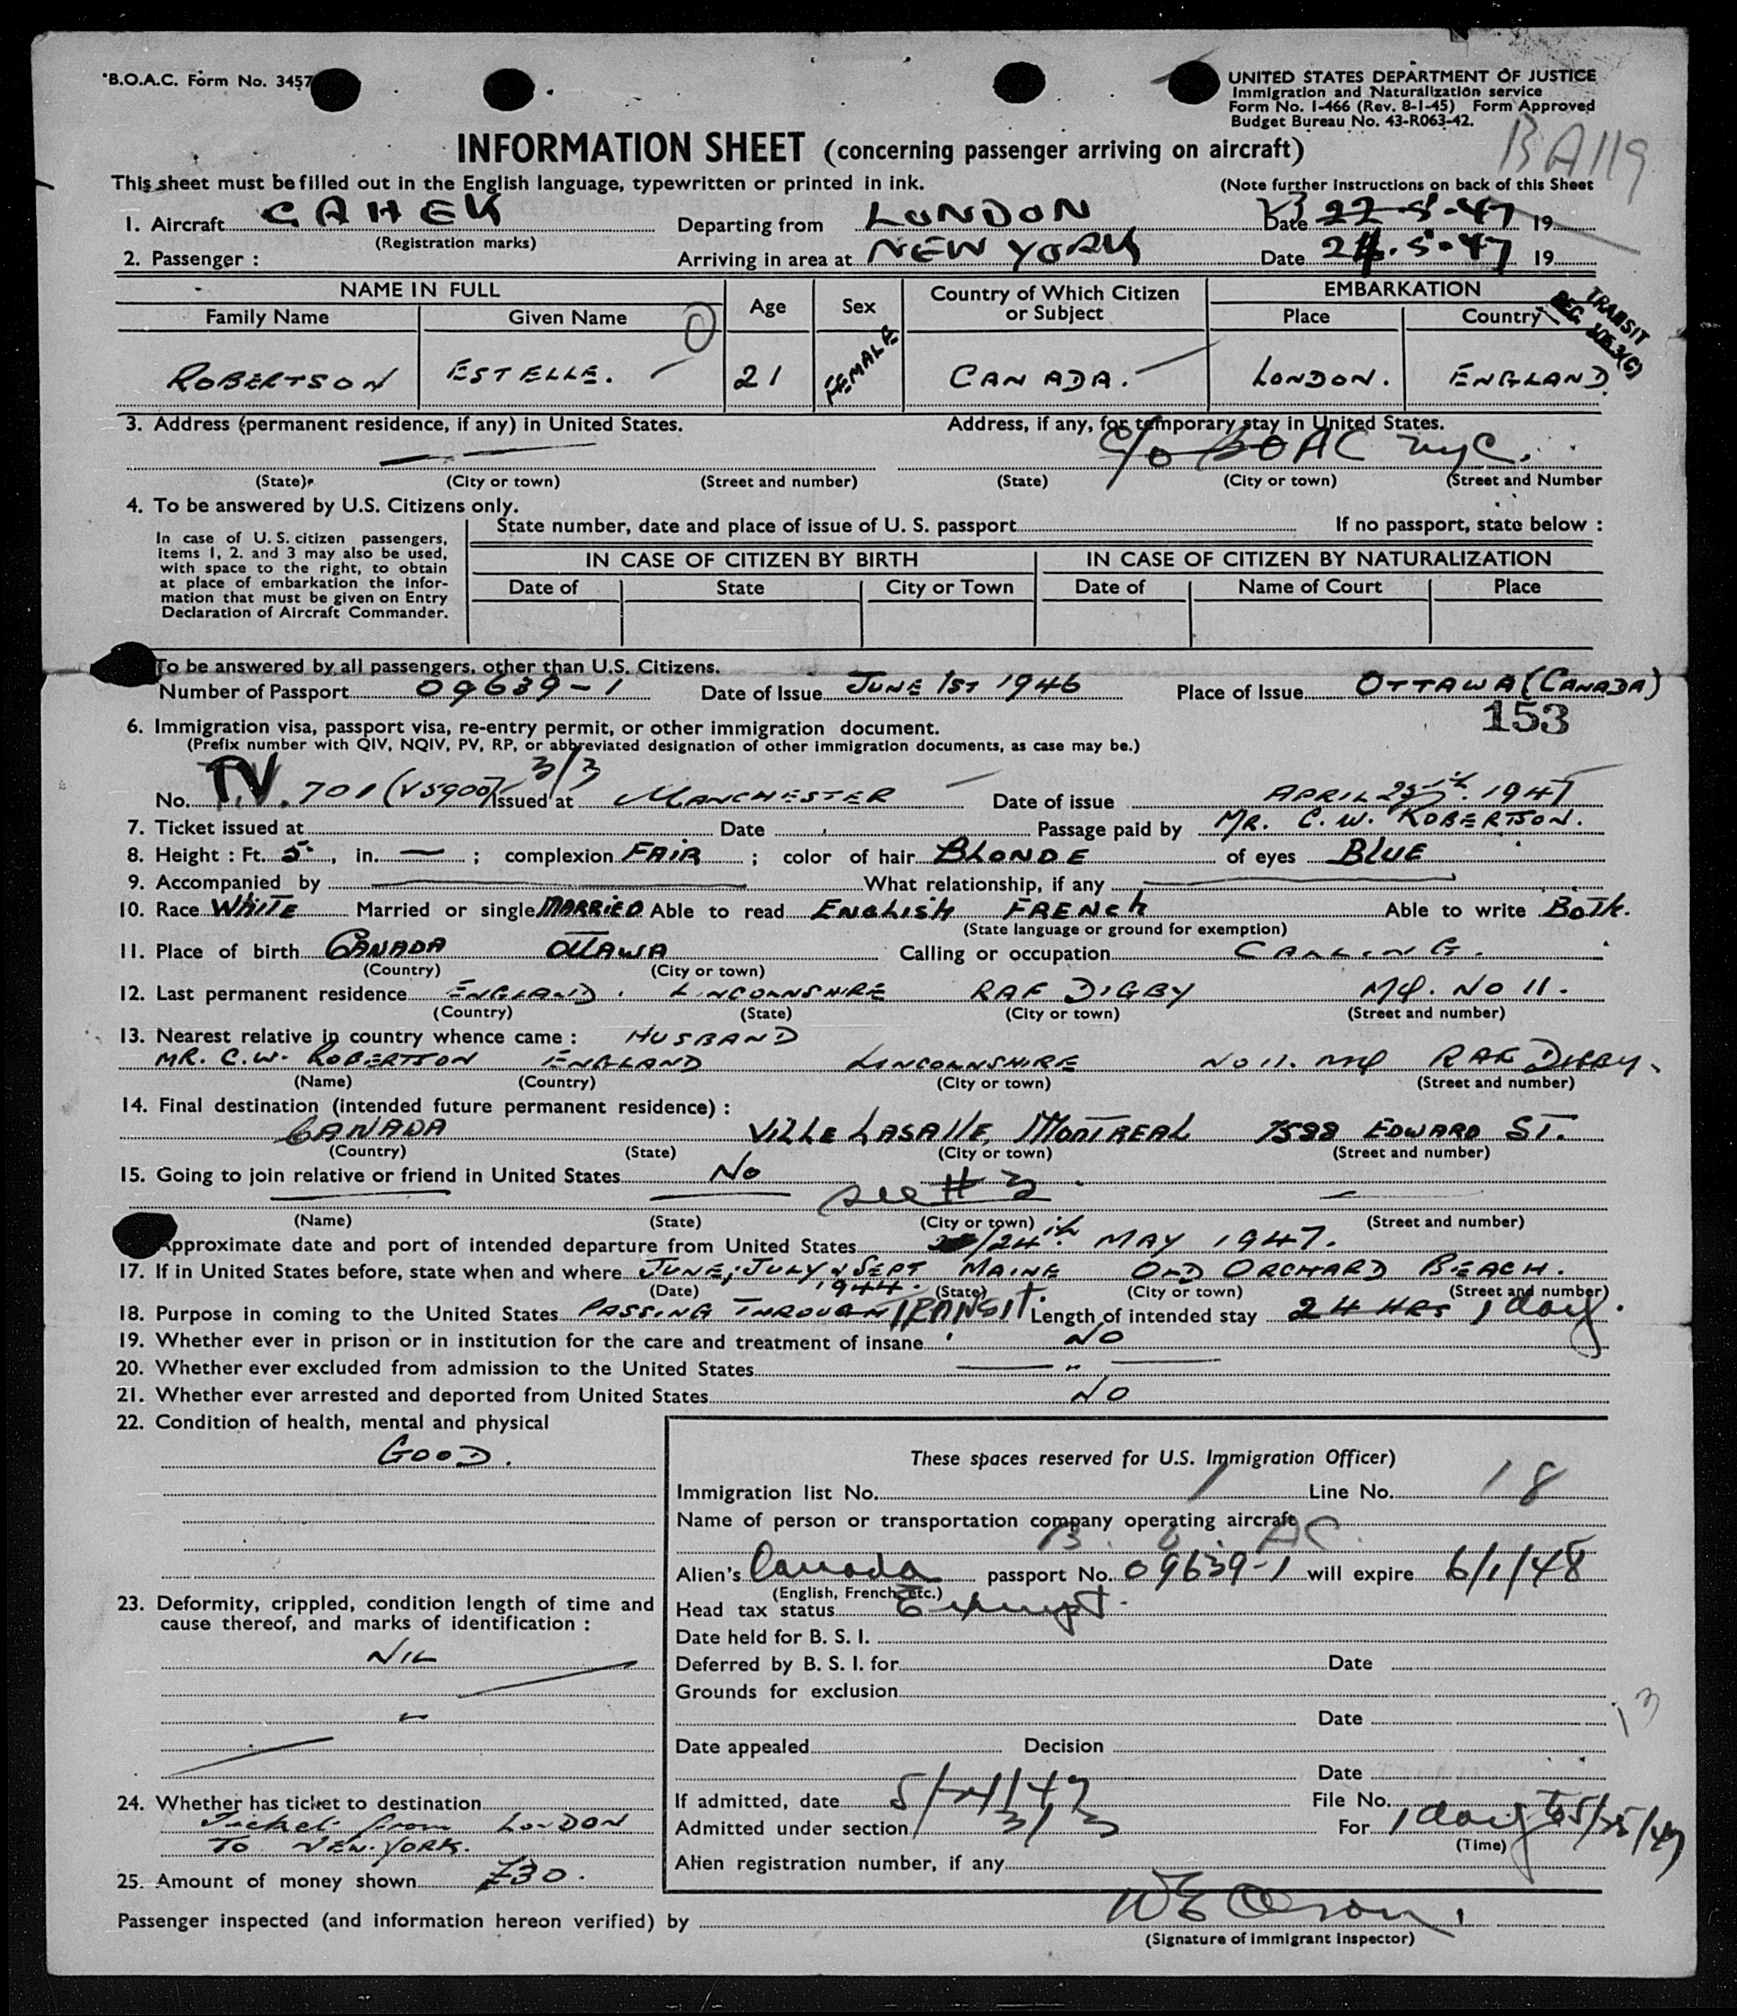 B.O.A.C. Form No. 3457
UNITED STATES DEPARTMENT OF JUSTICE
Immigration and Naturalization service
Form No. I-466 (Rev. 8-1-45) Form Approved
Budget Bureau No. 43-R063-42.
BA119
INFORMATION SHEET (concerning passenger arriving on aircraft)
This sheet must be filled out in the English language, typewritten or printed in ink. (Note further instructions on back of this Sheet
1. Aircraft GAHEK Departing from LONDON Date 22-5-47 19
(Registration marks)
2. Passenger : Arriving in area at NEW YORK Date 24.5.47 19
NAME IN FULL Age Sex Country of Which Citizen or Subject EMBARKATION
Family Name Given Name Place Country
TRANSIT
REG 105.3(C)
ROBERTSON ESTELLE. 21 FEMALE CANADA. LONDON. ENGLAND.
3. Address (permanent residence, if any) in United States. Address, if any, for temporary stay in United States.
c/o BOAC NYC.
(State) (City or town) (Street and number) (State) (City or town) (Street and Number
4. To be answered by U.S. Citizens only.
State number, date and place of issue of U. S. passport If no passport, state below :
In case of U. S. citizen passengers,
items 1, 2. and 3 may also be used,
with space to the right, to obtain
at place of embarkation the infor-
mation that must be given on Entry
Declaration of Aircraft Commander.
IN CASE OF CITIZEN BY BIRTH IN CASE OF CITIZEN BY NATURALIZATION
Date of State City or Town Date of Name of Court Place
To be answered by all passengers, other than U.S. Citizens.
Number of Passport 09639-1 Date of Issue JUNE 1ST 1946 Place of Issue OTTAWA (CANADA)
153
6. Immigration visa, passport visa, re-entry permit, or other immigration document.
(Prefix number with QIV, NQIV, PV, RP, or abbreviated designation of other immigration documents, as case may be.)
3/3
No. T.V. 701 (V5900) Issued at MANCHESTER Date of issue APRIL 25th 1947
7. Ticket issued at Date Passage paid by MR. C. W. ROBERTSON.
8. Height : Ft. 5 , in. — ; complexion FAIR ; color of hair BLONDE of eyes BLUE
9. Accompanied by What relationship, if any
10. Race WHITE Married or single MARRIED Able to read ENGLISH FRENCH Able to write BOTH.
(State language or ground for exemption)
11. Place of birth CANADA OTTAWA Calling or occupation
(Country) (City or town)
12. Last permanent residence ENGLAND. LINCOLNSHIRE RAF DIGBY MQ. NO 11.
(Country) (State) (City or town) (Street and number)
13. Nearest relative in country whence came : HUSBAND
MR. C.W. ROBERTSON ENGLAND LINCOLNSHIRE NO 11. MQ RAF DIGBY
(Name) (Country) (City or town) (Street and number)
14. Final destination (intended future permanent residence) :
CANADA VILLE LASALLE, MONTREAL 7588 EDWARD ST.
(Country) (State) (City or town) (Street and number)
15. Going to join relative or friend in United States No
see # 3
(Name) (State) (City or town) (Street and number)
Approximate date and port of intended departure from United States /24th MAY 1947.
17. If in United States before, state when and where JUNE, JULY & SEPT 1944. MAINE OLD ORCHARD BEACH.
(Date) (State) (City or town) (Street and number)
18. Purpose in coming to the United States PASSING THROUGH TRANSIT. Length of intended stay 24 HRS 1 day.
19. Whether ever in prison or in institution for the care and treatment of insane NO
20. Whether ever excluded from admission to the United States — " —
21. Whether ever arrested and deported from United States NO
22. Condition of health, mental and physical
GOOD.
These spaces reserved for U.S. Immigration Officer)
Immigration list No. 1 Line No. 18
Name of person or transportation company operating aircraft
B. O. AC
Alien's Canada passport No. 09639-1 will expire 6/1/48
(English, French, etc.)
23. Deformity, crippled, condition length of time and
cause thereof, and marks of identification :
NIL
"
Head tax status Exempt.
Date held for B. S. I.
Deferred by B. S. I. for Date
Grounds for exclusion
13
Date
Date appealed Decision
Date
24. Whether has ticket to destination
Ticket from LONDON
TO NEW-YORK.
25. Amount of money shown £30.
If admitted, date 5/24/47 File No.
Admitted under section 3/3 For 1 day to 5/25/47
(Time)
Alien registration number, if any
Passenger inspected (and information hereon verified) by
(Signature of Immigrant Inspector)